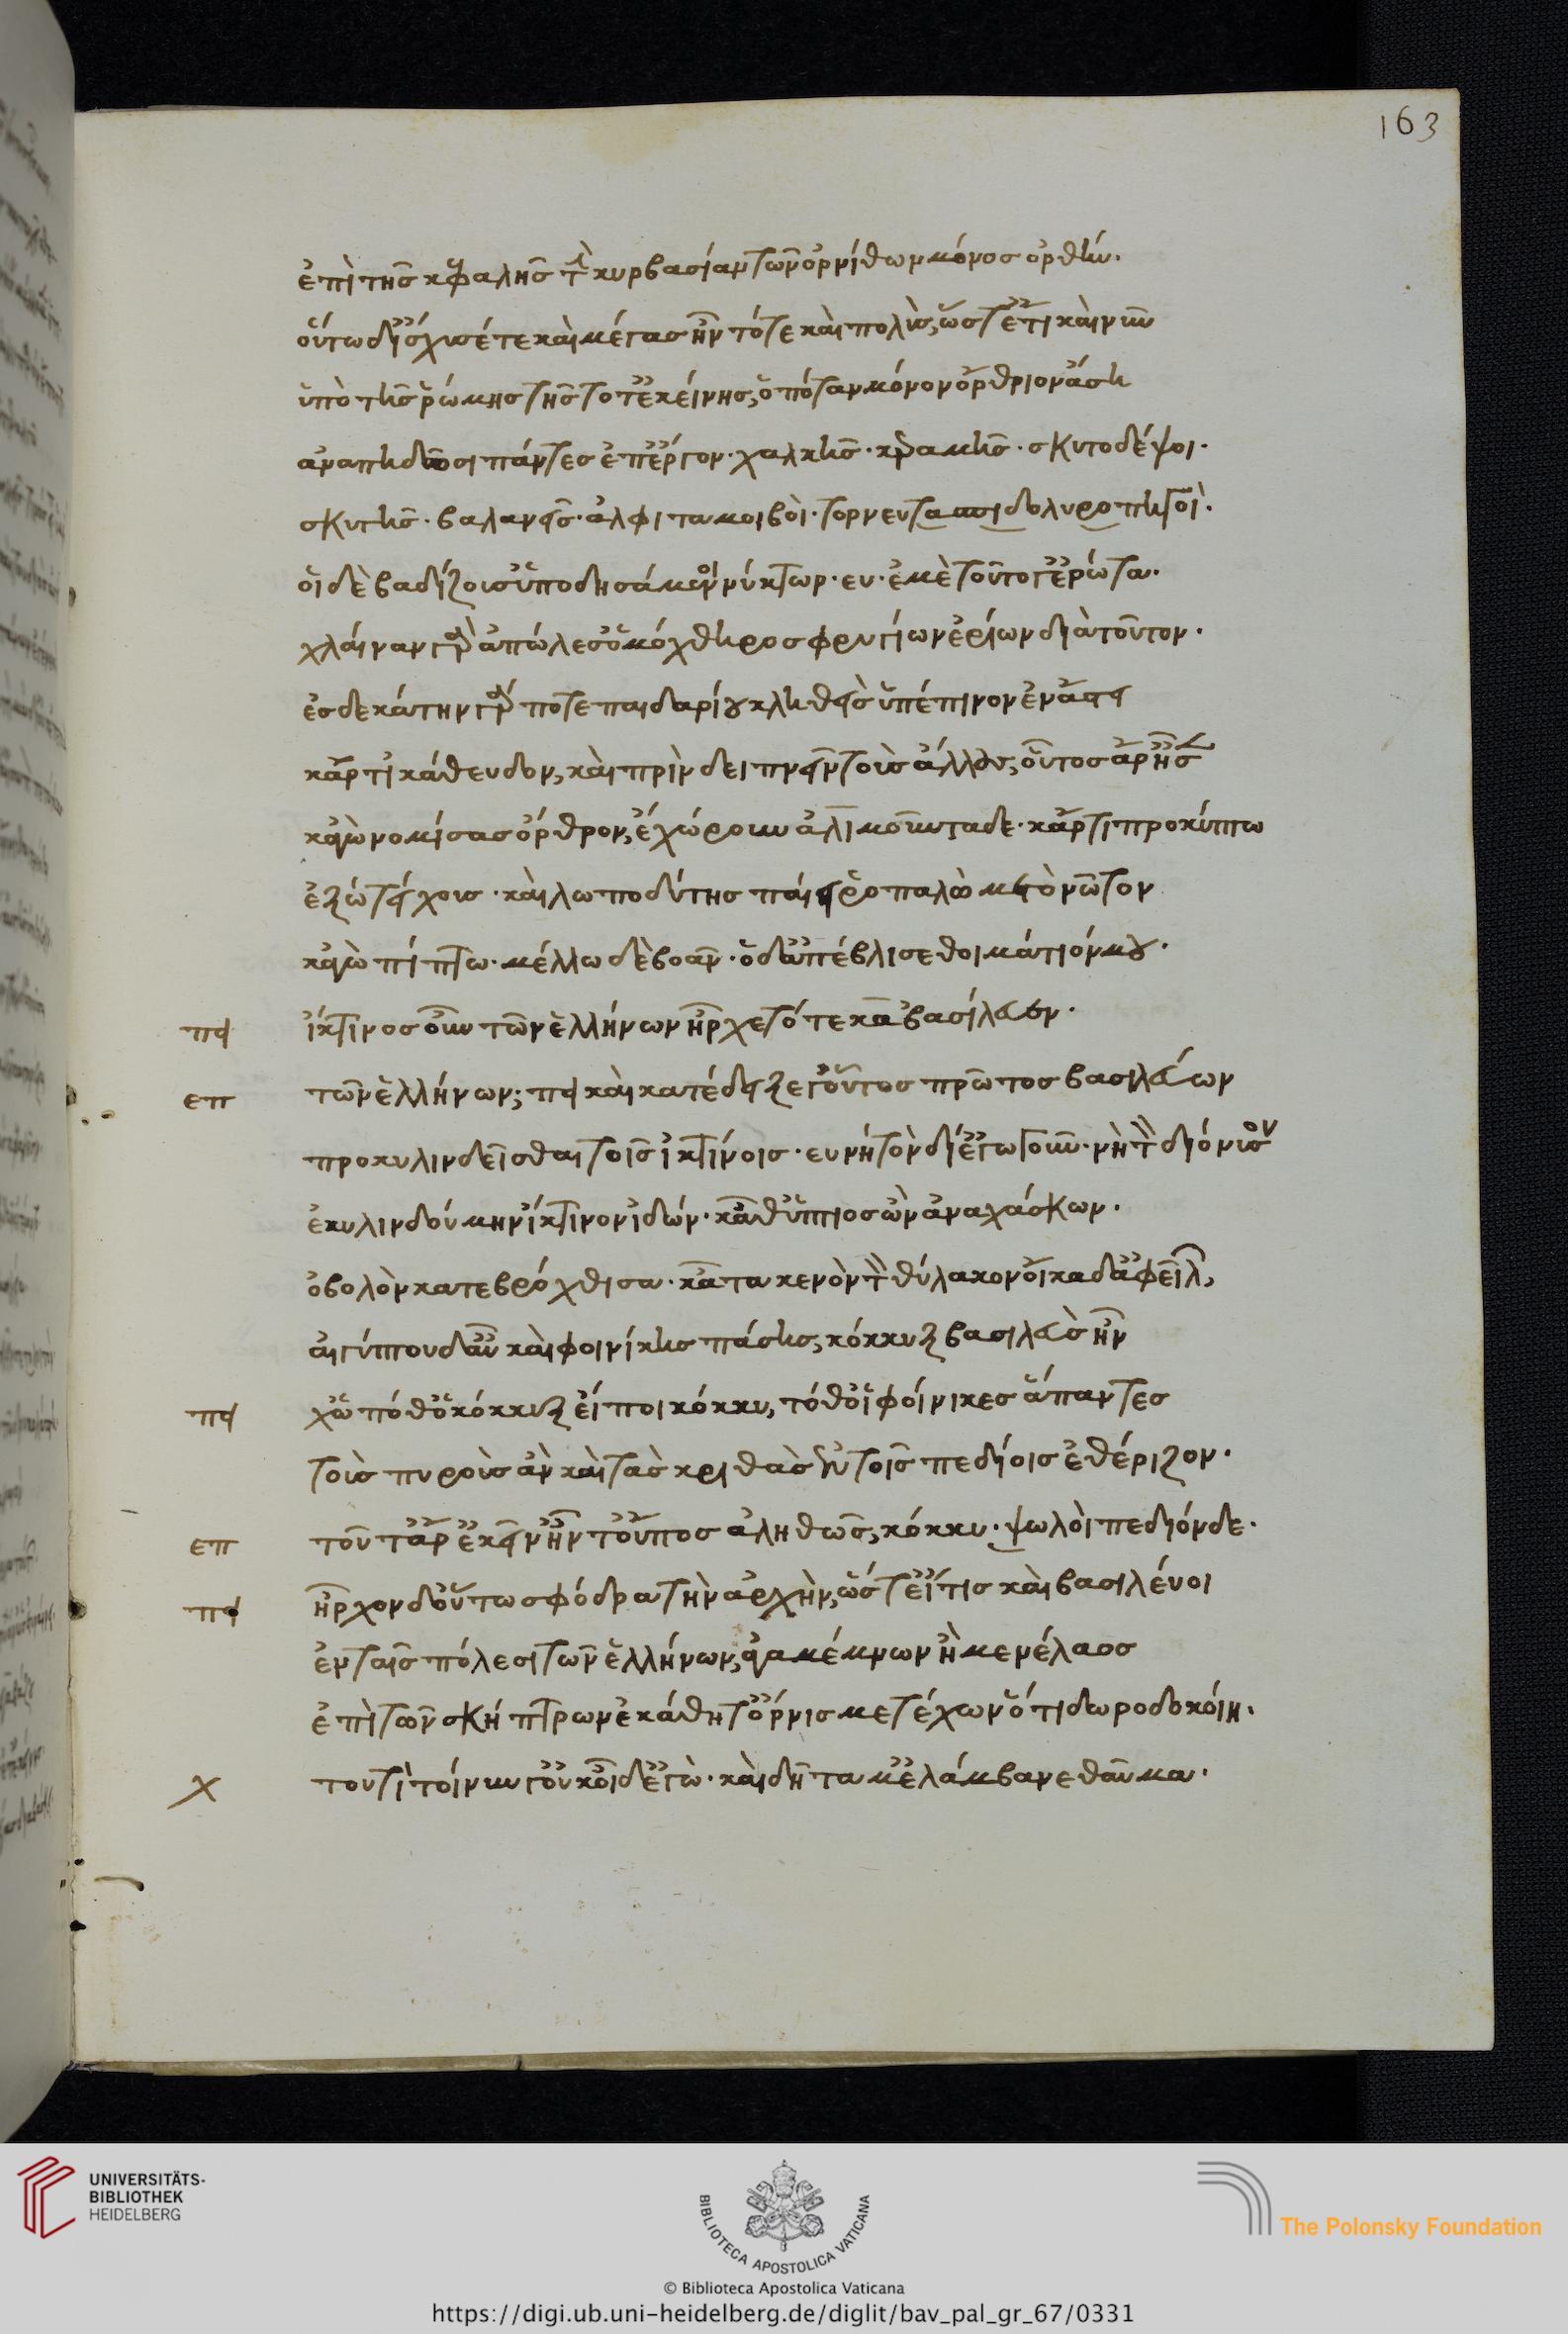 163
ἐπὶ τῆς κεφαλῆς τὴν κυρβασίαν τῶν ὀρνίθων μόνος ὀρθήν.
οὕτω δ' ἴσχυσέ τε καὶ μέγας ἦν τότε καὶ πολὺς, ὥστ' ἔτι καὶ νῦν
ὑπὸ τῆς ῥώμης τῆς τότ' ἐκείνης, ὁπόταν μόνον ὄρθριον ἄσῃ
ἀναπηδῶσι πάντες ἐπ' ἔργον· χαλκῆς· κεραμῆς· σκυτοδέψοι·
σκυτῆς· βαλανεῖς· ἀλφιταμοιβοὶ· τορνευτασπιδολυροπηγοὶ·
οἱ δὲ βαδίζουσ' ὑποδησάμενοι νύκτωρ· ευ· ἐμὲ τοῦτο γ' ἐρώτα·
χλαίναν γὰρ ἀπώλεσ' ὁ μόχθηρος φρυγίων ἐρίων διὰ τοῦτον·
ἐς δεκάτην γάρ ποτε παιδαρίου κληθεὶς ὑπέπινον ἐν ἄστει
κἄρτι κάθευδον, καὶ πρὶν δειπνεῖν τοὺς ἄλλους, οὗτος ἄρ' ἦσεν
κἀγὼ νομίσας ὄρθρον, ἐχώρουν ἁλιμοῦντάδε· κἄρτι προκύπτω
ἔξω τείχους· καὶ λωποδύτης παίει ῥοπάλω με τὸ νῶτον
κἀγὼ πίπτω· μέλλω δὲ βοᾶν· ὁ δ' ἀπέβλισε θοἰμάτιόν μου·
πει ἴκτινος οὖν τῶν ἑλλήνων ἦρχε τότε κἀβασίλευεν·
επ τῶν ἑλλήνων; πει καὶ κατέδειξε γ' οὗτος πρῶτος βασιλεύων
προκυλινδεῖσθαι τοῖς ἰκτίνοις· ευ νὴ τὸν δι' ἔγωγ' οὖν· νὴ τὸν διόνυσον
ἐκυλινδούμην ἴκτινον ἰδών· κᾆθ' ὕπτιος ὢν ἀναχάσκων·
ὀβολὸν κατεβρόχθισα· κᾆτα κενὸν τὸν θύλακον οἴκαδ' ἀφεῖλκον,
αἰγύπτου δ' αὖ καὶ φοινίκης πάσης, κόκκυξ βασιλεὺς ἦν
πει χὠπόθ' ὁ κόκκυξ εἴποι κόκκυ, τόθ' οἱ φοίνικες ἅπαντες
τοὺς πυροὺς ἂν καὶ τὰς κριθὰς ἐν τοῖς πεδίοις ἐθέριζον·
επ τοῦτ' ἄρ' ἐκεῖν' ἦν τοὔπος ἀληθῶς, κόκκυ· ψωλοὶ πεδίονδε·
πει ἦρχον δ' οὕτω σφόδρα τὴν ἀρχὴν, ὥστ' εἴ τις καὶ βασιλεύοι
ἐν ταῖς πόλεσι τῶν ἑλλήνων, ἀγαμέμνων ἢ μενέλαος
ἐπὶ τῶν σκήπτρων ἐκάθητ' ὄρνις μετέχων ὅ τι δωροδοκοίη·
χ τουτὶ τοίνυν γ' οὐκ οἶδ' ἐγὼ· καὶ δῆτά μ' ἐλάμβανε θαῦμα·
UNIVERSITÄTS-
BIBLIOTHEK
HEIDELBERG
BIBLIOTECA APOSTOLICA VATICANA
The Polonsky Foundation
© Biblioteca Apostolica Vaticana
https://digi.ub.uni-heidelberg.de/diglit/bav_pal_gr_67/0331